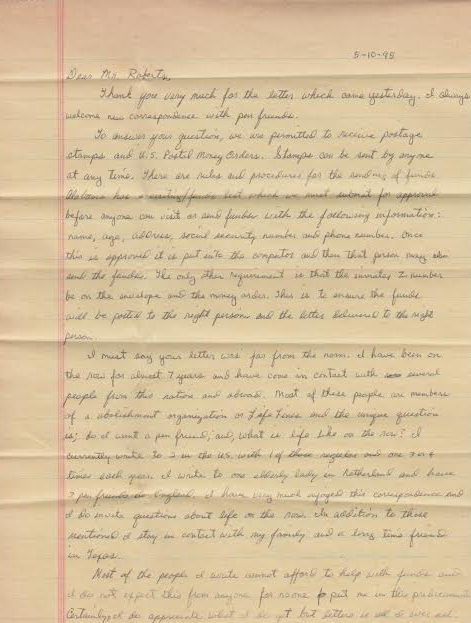 5-10-95
Dear Mr. Roberts,
Thank you very much for the letter which came yesterday. I always
welcome new correspondence with pen friends.
To answer your question, we are permitted to receive postage
stamps and U.S. Postal Money Orders. Stamps can be sent by anyone
at any time. There are rules and procedures for the sending of funds
Alabama has a visiting/funds list which we must submit for approval
before anyone can visit or send funds with the following information:
name, age, address, social security number and phone number. Once
this is approved it is put into the computer and then that person may
send the funds. The only other requirement is that the inmates Z number
be on the envelope and the money order. This is to ensure the funds
will be posted to the right person and the letter delivered to the right
person.
I must say your letter was far from the norm. I have been on
the row for almost 7 years and have come in contact with several
people from this nation and abroad. Most of these people are members
of a abolishment organization or Life Lines and the unique question
is; do I want a pen friend, and, what is life like on the row? I
currently write to 2 in the U.S. with 1 of those regular and one 3 or 4
times each year. I write to one elderly lady in Netherland and have
pen friends in England. I have very much enjoyed this correspondence and
I do invite questions about life on the row. In addition to those
mentioned I stay in contact with my family and a long time friend
in Texas.
Most of the people I write cannot afford to help with funds and
I does not expect this from anyone for no one put me in this predicament
Certainly I do appreciate what I do get but letters is